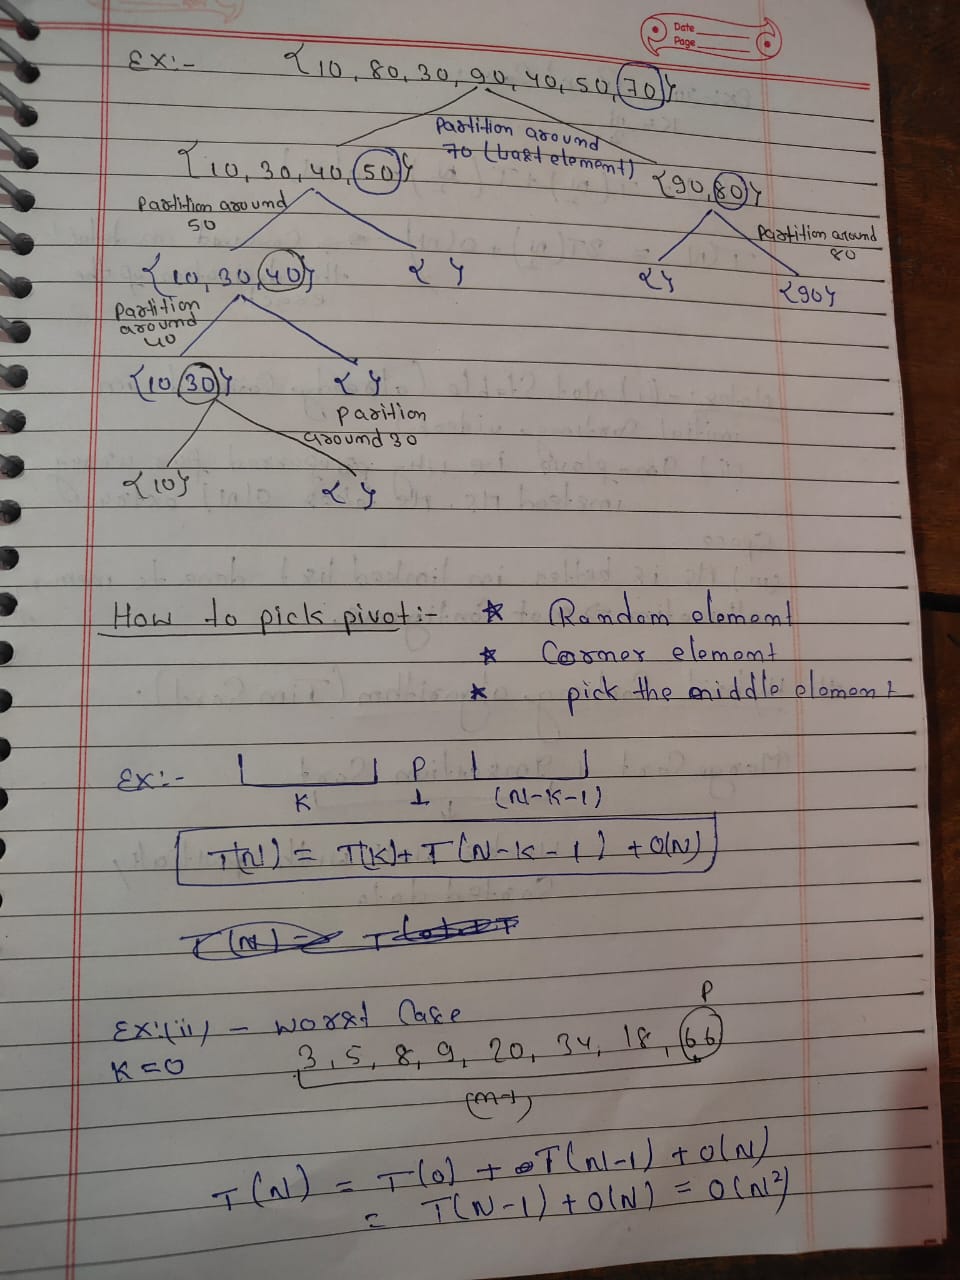 Date
Page
Ex:- {10, 80, 30, 90, 40, 50, 70}
Partition around
70 (Last element)
{10, 30, 40, 50}
{90, 80}
Partition around
50
Partition around
80
{10, 30, 40}
{ }
{ }
{90}
Partition
around
40
{10 30}
{ }
parition
around 30
{10}
{ }
How to pick pivot:- ★ Random element
★ Corner element
★ pick the middle element
Ex:- P
K 1 (N-K-1)
T(N) = T(K) + T(N-K-1) + O(N)
T(N) =
Ex:(ii) - Worst Case
P
K=0 3, 5, 8, 9, 20, 34, 18, 66
(n-1)
T(N) = T(0) + T(N-1) + O(N)
= T(N-1) + O(N) = O(N²)